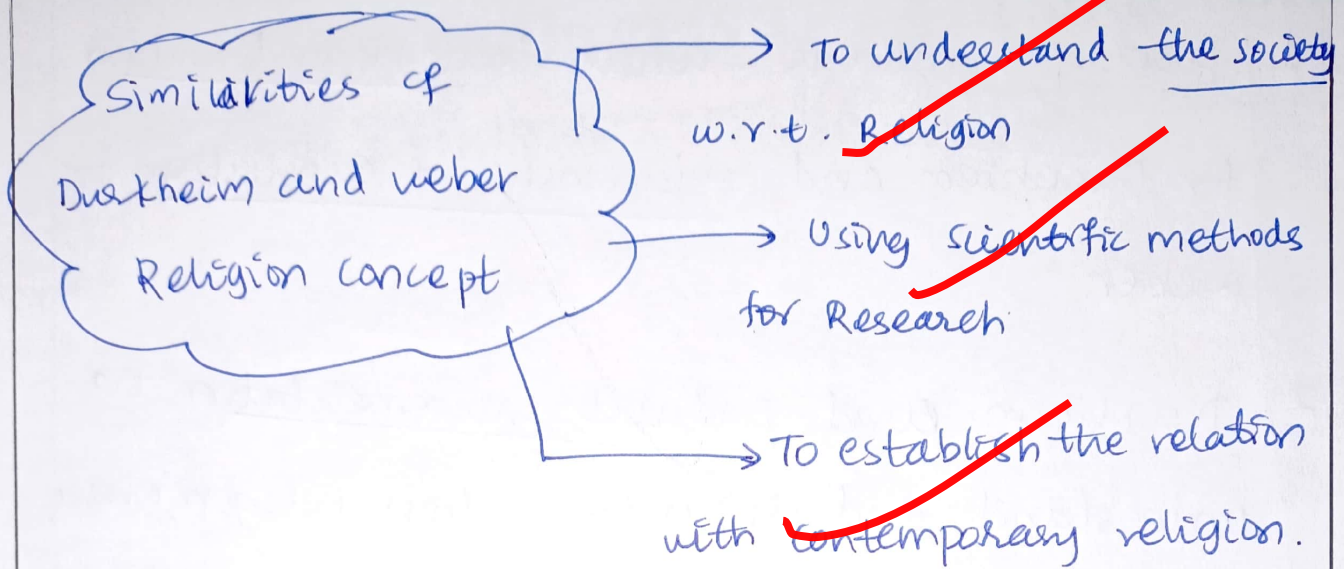 Similarities of
Durkheim and weber
Religion concept
To understand the society
w.r.t. Religion
Using scientific methods
for Research
To establish the relation
with contemporary religion.